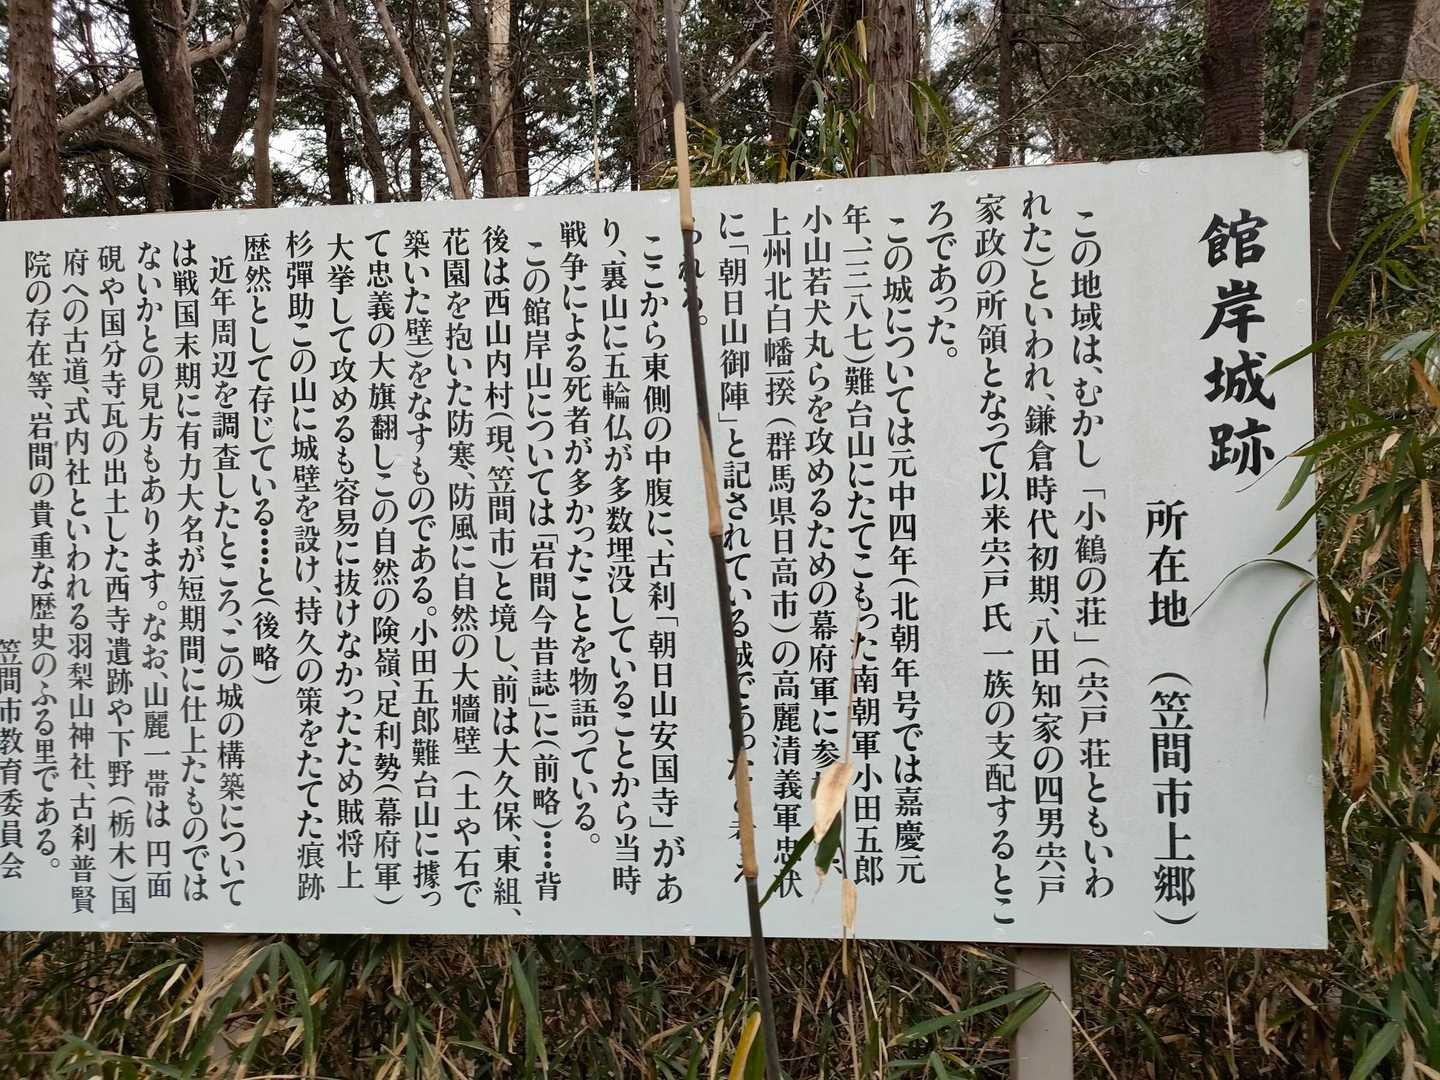 館岸城跡
所在地 (笠間市上郷)
この地域は、むかし「小鶴の荘」(宍戸荘ともいわ
れた)といわれ、鎌倉時代初期、八田知家の四男宍戸
家政の所領となって以来宍戸氏一族の支配するとこ
ろであった。
この城については元中四年(北朝年号では嘉慶元
年、一三八七)難台山にたてこもった南朝軍小田五郎
小山若犬丸らを攻めるための幕府軍に参
上州北白幡一揆(群馬県日高市)の高麗清義軍忠状
に「朝日山御陣」と記されている城であった
られる。
ここから東側の中腹に、古刹「朝日山安国寺」があ
り、裏山に五輪仏が多数埋没していることから当時
戦争による死者が多かったことを物語っている。
この館岸山については「岩間今昔誌」に(前略)……背
後は西山内村(現、笠間市)と境し、前は大久保、東組、
花園を抱いた防寒、防風に自然の大牆壁(土や石で
築いた壁)をなすものである。小田五郎難台山に據っ
て忠義の大旗翻しこの自然の険嶺、足利勢(幕府軍)
大挙して攻めるも容易に抜けなかったため賊将上
杉彈助この山に城壁を設け、持久の策をたてた痕跡
歴然として存じている……と(後略)
近年周辺を調査したところ、この城の構築について
は戦国末期に有力大名が短期間に仕上たものでは
ないかとの見方もあります。なお、山麗一帯は円面
硯や国分寺瓦の出土した西寺遺跡や下野(栃木)国
府への古道、式内社といわれる羽梨山神社、古刹普賢
院の存在等、岩間の貴重な歴史のふる里である。
笠間市教育委員会